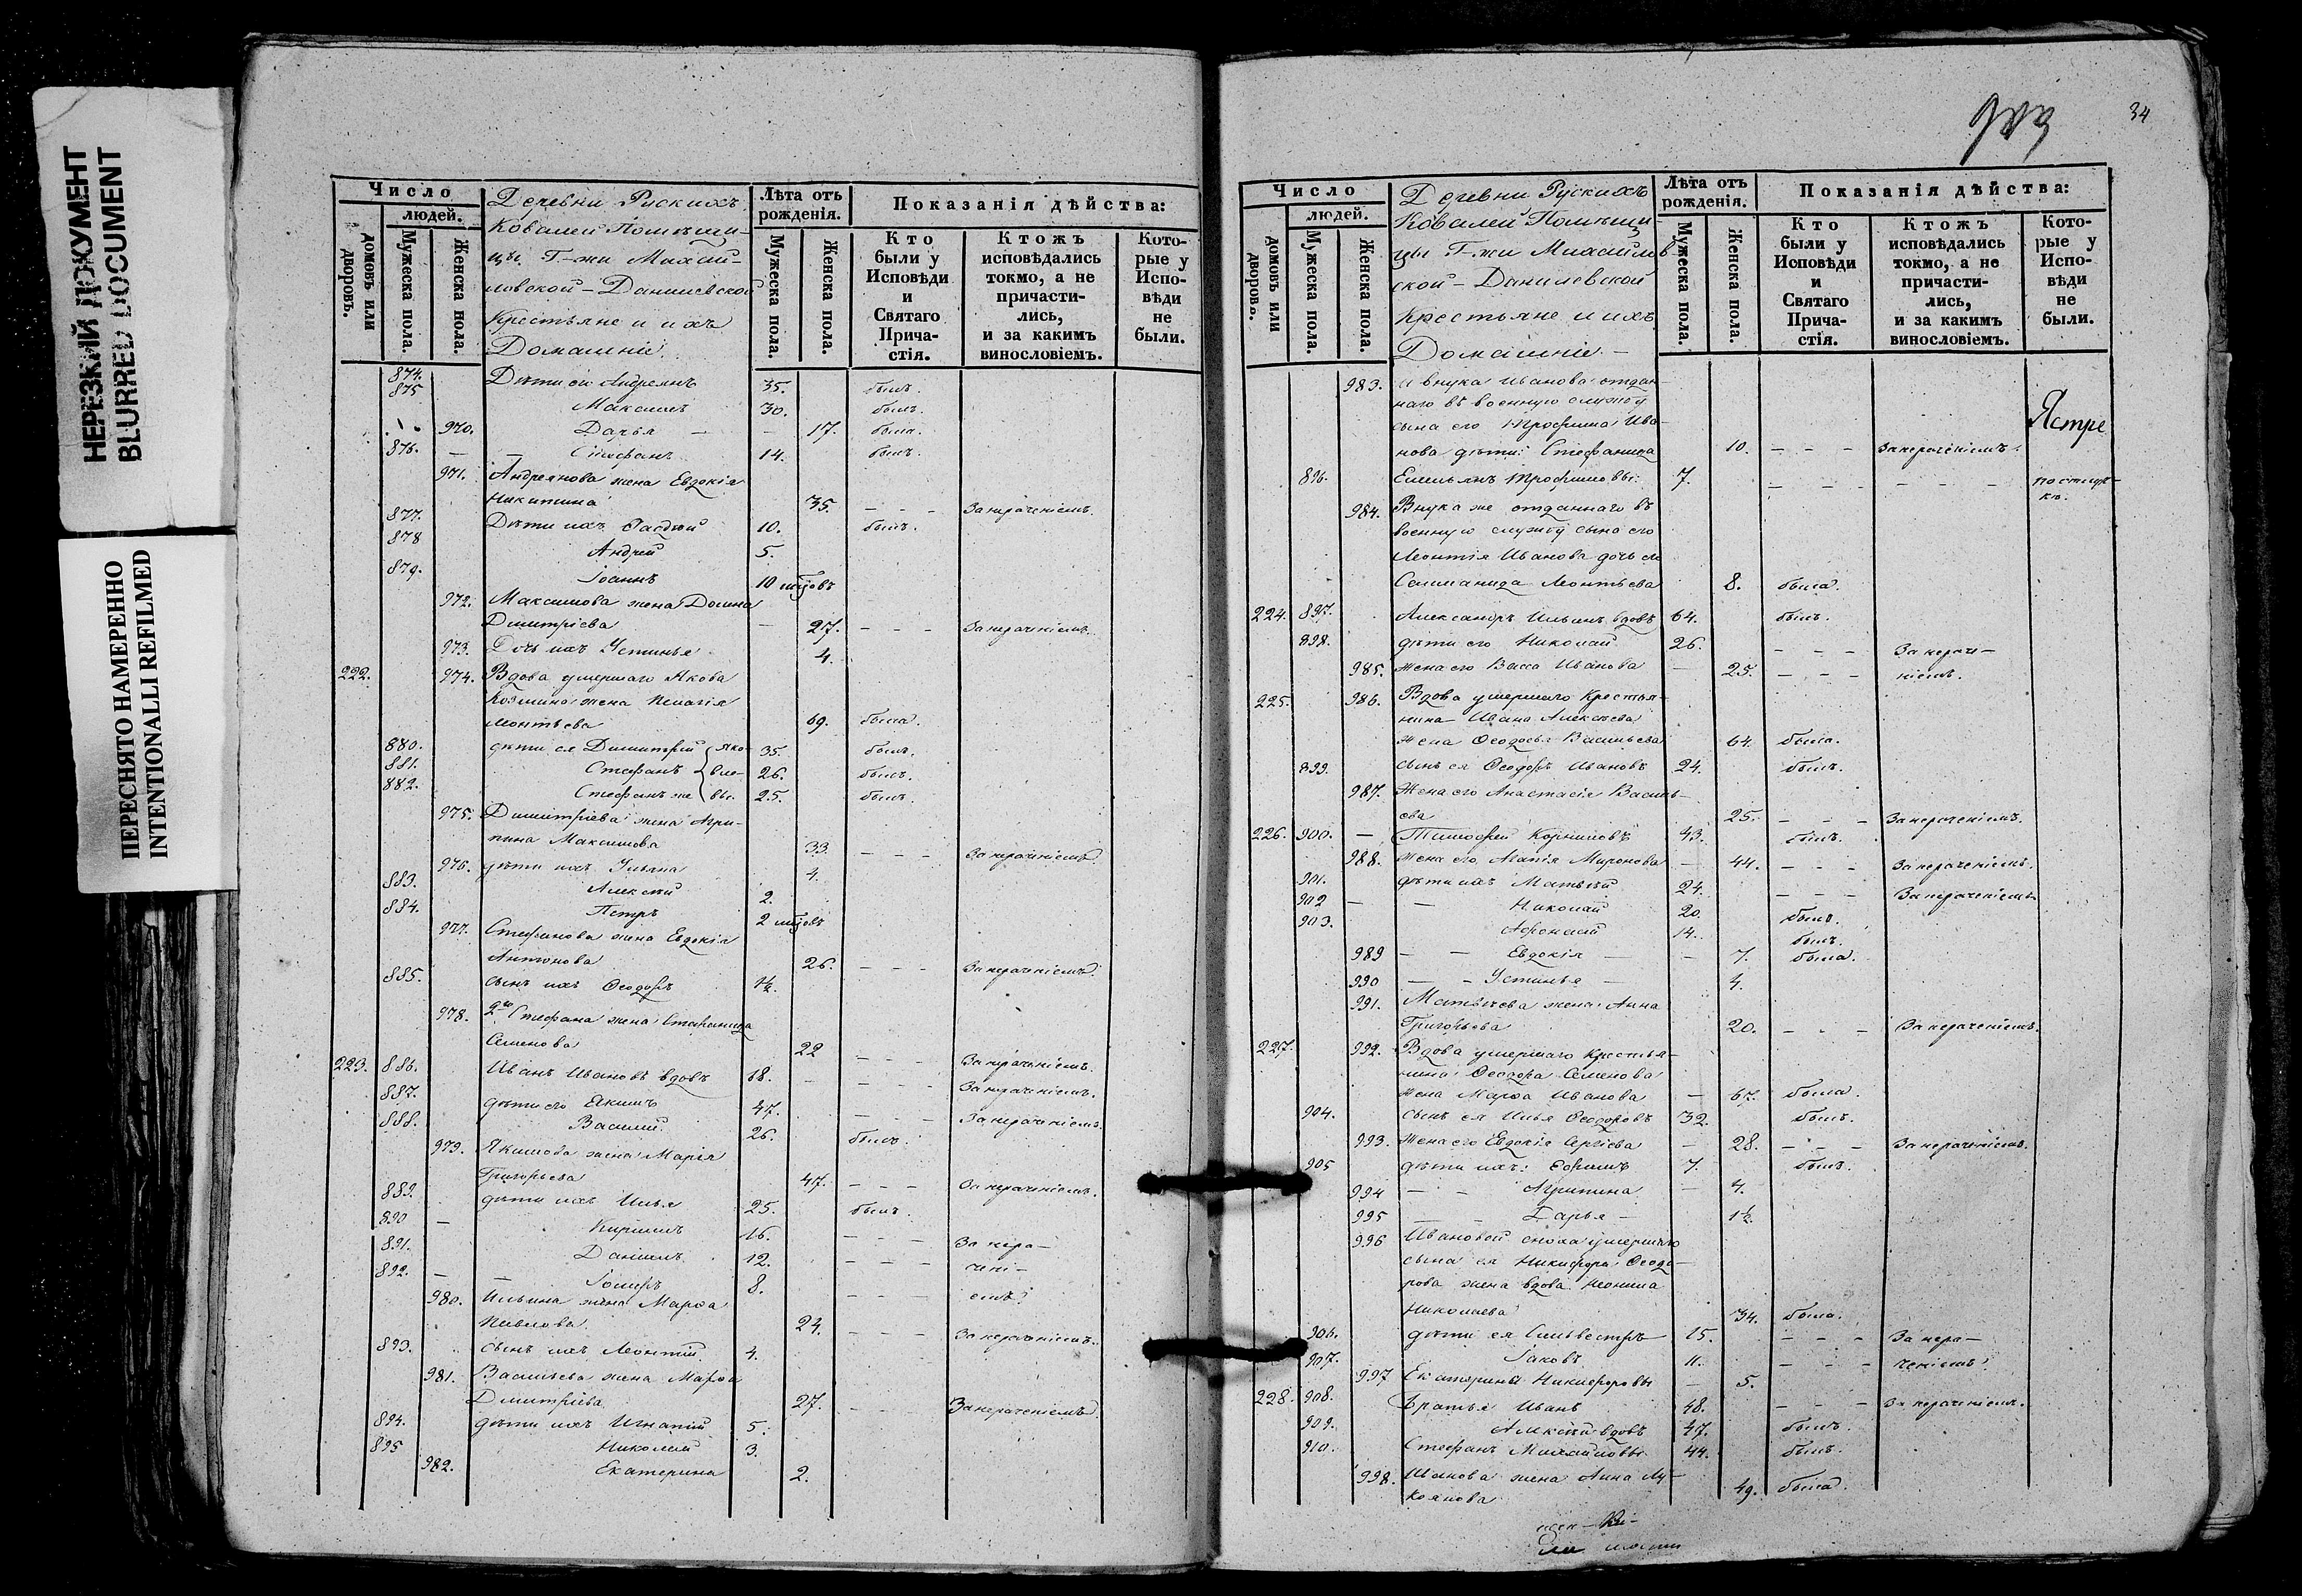 НЕРЕЗКИЙ ДОКУМЕНТ
BLURRED DOCUMENT
ПЕРЕСНЯТО НАМЕРЕННО
INTENTIONALLI REFILMED
Число
людей.
домовъ или дворовъ.
Мужеска пола.
Женска пола.
Деревни Рускихъ
Ковалей Помѣщи-
цы Г-жи Михай-
ловской-Данилевской
Крестьяне и ихъ
Домашніе
Лѣта отъ рожденія.
Мужеска пола.
Женска пола.
Показанія дѣйства:
Кто были у Исповѣди и Святаго Прича-стія.
Ктожъ исповѣдались токмо, а не причасти-лись, и за какимъ винословіемъ.
Кото-рые у Испо-вѣди не были.
874. Дѣти ея Андреянъ 35. былъ.
875 Максимъ 30. былъ.
970. Дарья 17. была.
876. Стефанъ 14. былъ.
971. Андреянова жена Евдокія
Никитина 35. За нераченіемъ.
877. Дѣти ихъ 10. былъ.
878 Андрей 5.
879. Іоаннъ 10
972. Максимова жена
Димитріева 27. За нераченіемъ.
973. Дочь ихъ Устинья 4.
222. 974. Вдова умершаго Якова
Козмина жена Пелагія
Леонтьева 69. была.
880. дѣти ея Димитрій Яко- 35. былъ.
881. Стефанъ вле- 26. былъ.
882. Стефанъ же вы. 25. былъ.
975. Димитріева жена Агри-
пина Максимова 33. За нераченіемъ.
976. дѣти ихъ Ульяна 4.
883. Алексѣй 2.
884. Петръ 2
977. Стефанова жена Евдокія
Антонова 26. За нераченіемъ.
885. сынъ ихъ Ѳеодоръ 1½.
978. 2го Стефана жена Стефанида
Семенова 22 За нераченіемъ.
223. 886. Иванъ Ивановъ вдовъ 68. За нераченіемъ.
887. дѣти его Якимъ 47. За нераченіемъ.
888. Василій 26. былъ.
979. Якимова жена Марія
Григорьева 47. За нераченіемъ.
889. дѣти ихъ Илья 25. былъ.
890 Кирилъ 16. За нера-
891. Даніилъ 12. чені-
892. Іосифъ 8. емъ.
980. Ильина жена Марѳа
Павлова 24. За нераченіемъ.
893. сынъ ихъ Леонтій 4.
981. Васильева жена Марѳа
Димитріева 27. За нераченіемъ.
894. дѣти ихъ Игнатій 5.
895 Николай 3.
982. Екатерина 2.
34
Число
людей.
домовъ или дворовъ.
Мужеска пола.
Женска пола.
Деревни Рускихъ
Ковалей Помѣщи-
цы Г-жи Михайлов-
ской-Данилевской
Крестьяне и ихъ
Домашніе
Лѣта отъ рожденія.
Мужеска пола.
Женска пола.
Показанія дѣйства:
Кто были у Исповѣди и Святаго Прича-стія.
Ктожъ исповѣдались токмо, а не причасти-лись, и за какимъ винословіемъ.
Кото-рые у Испо-вѣди не были.
983. а внука Иванова отдан-
наго въ военную службу
сына его Трофима Ива-
нова дѣти: Стефанида 10. За нераченіемъ.
896. Емельянъ Трофимовы. 7.
984. Внука же отданнаго въ
военную службу сына его
Леонтія Иванова дочь его
Саломанида Леонтьева 8. была.
224. 897. Александръ Ильинъ вдовъ 64. былъ.
898. дѣти его Николай 26. За нераче-
985. жена его Васса Иванова 25. ніемъ.
225. 986. Вдова умершаго Крестья-
нина Ивана Алексѣева
жена Ѳеодосья Васильева 64. была.
899. сынъ ея Ѳеодоръ Ивановъ 24. былъ.
987. Жена его Анастасія Василь-
ева 25. За нераченіемъ.
226. 900. Тимофей Корниловъ 43. былъ.
988. жена его Агапія Миронова 44. За нераченіемъ.
901. дѣти ихъ Матвѣй 24. За нераченіемъ
902 Николай 20. былъ.
903. Афонасій 14. былъ.
989 Евдокія 7. была.
990 Устинья 4.
991. Матвѣева жена Анна
Григорьева 20. За нераченіемъ.
227. 992. Вдова умершаго Крестья-
нина Ѳеодора Семенова
жена Марѳа Иванова 67. была.
904. сынъ ея Илья Ѳеодоровъ 32. былъ.
993. Жена его Евдокія Сергіева 28. За нераченіемъ.
905 дѣти ихъ: Ефимъ 7. былъ.
994 Агрипина 4.
995 Дарья 1½.
996 Ивановой сноха умершаго
сына ея Никифора Ѳеодо-
рова жена вдова Неонила
Николаева 34. была.
906. дѣти ея Сильвестръ 15. За нера-
907. Іаковъ 11. ченіемъ.
997 Екатерина Никифоровы 5.
228. 908. Братья Иванъ 48. За нераченіемъ.
909. Алексѣй вдовъ 47. былъ.
910. Стефанъ Михайловы 44. былъ.
998. Иванова жена Анна Лу-
коянова 49. была.